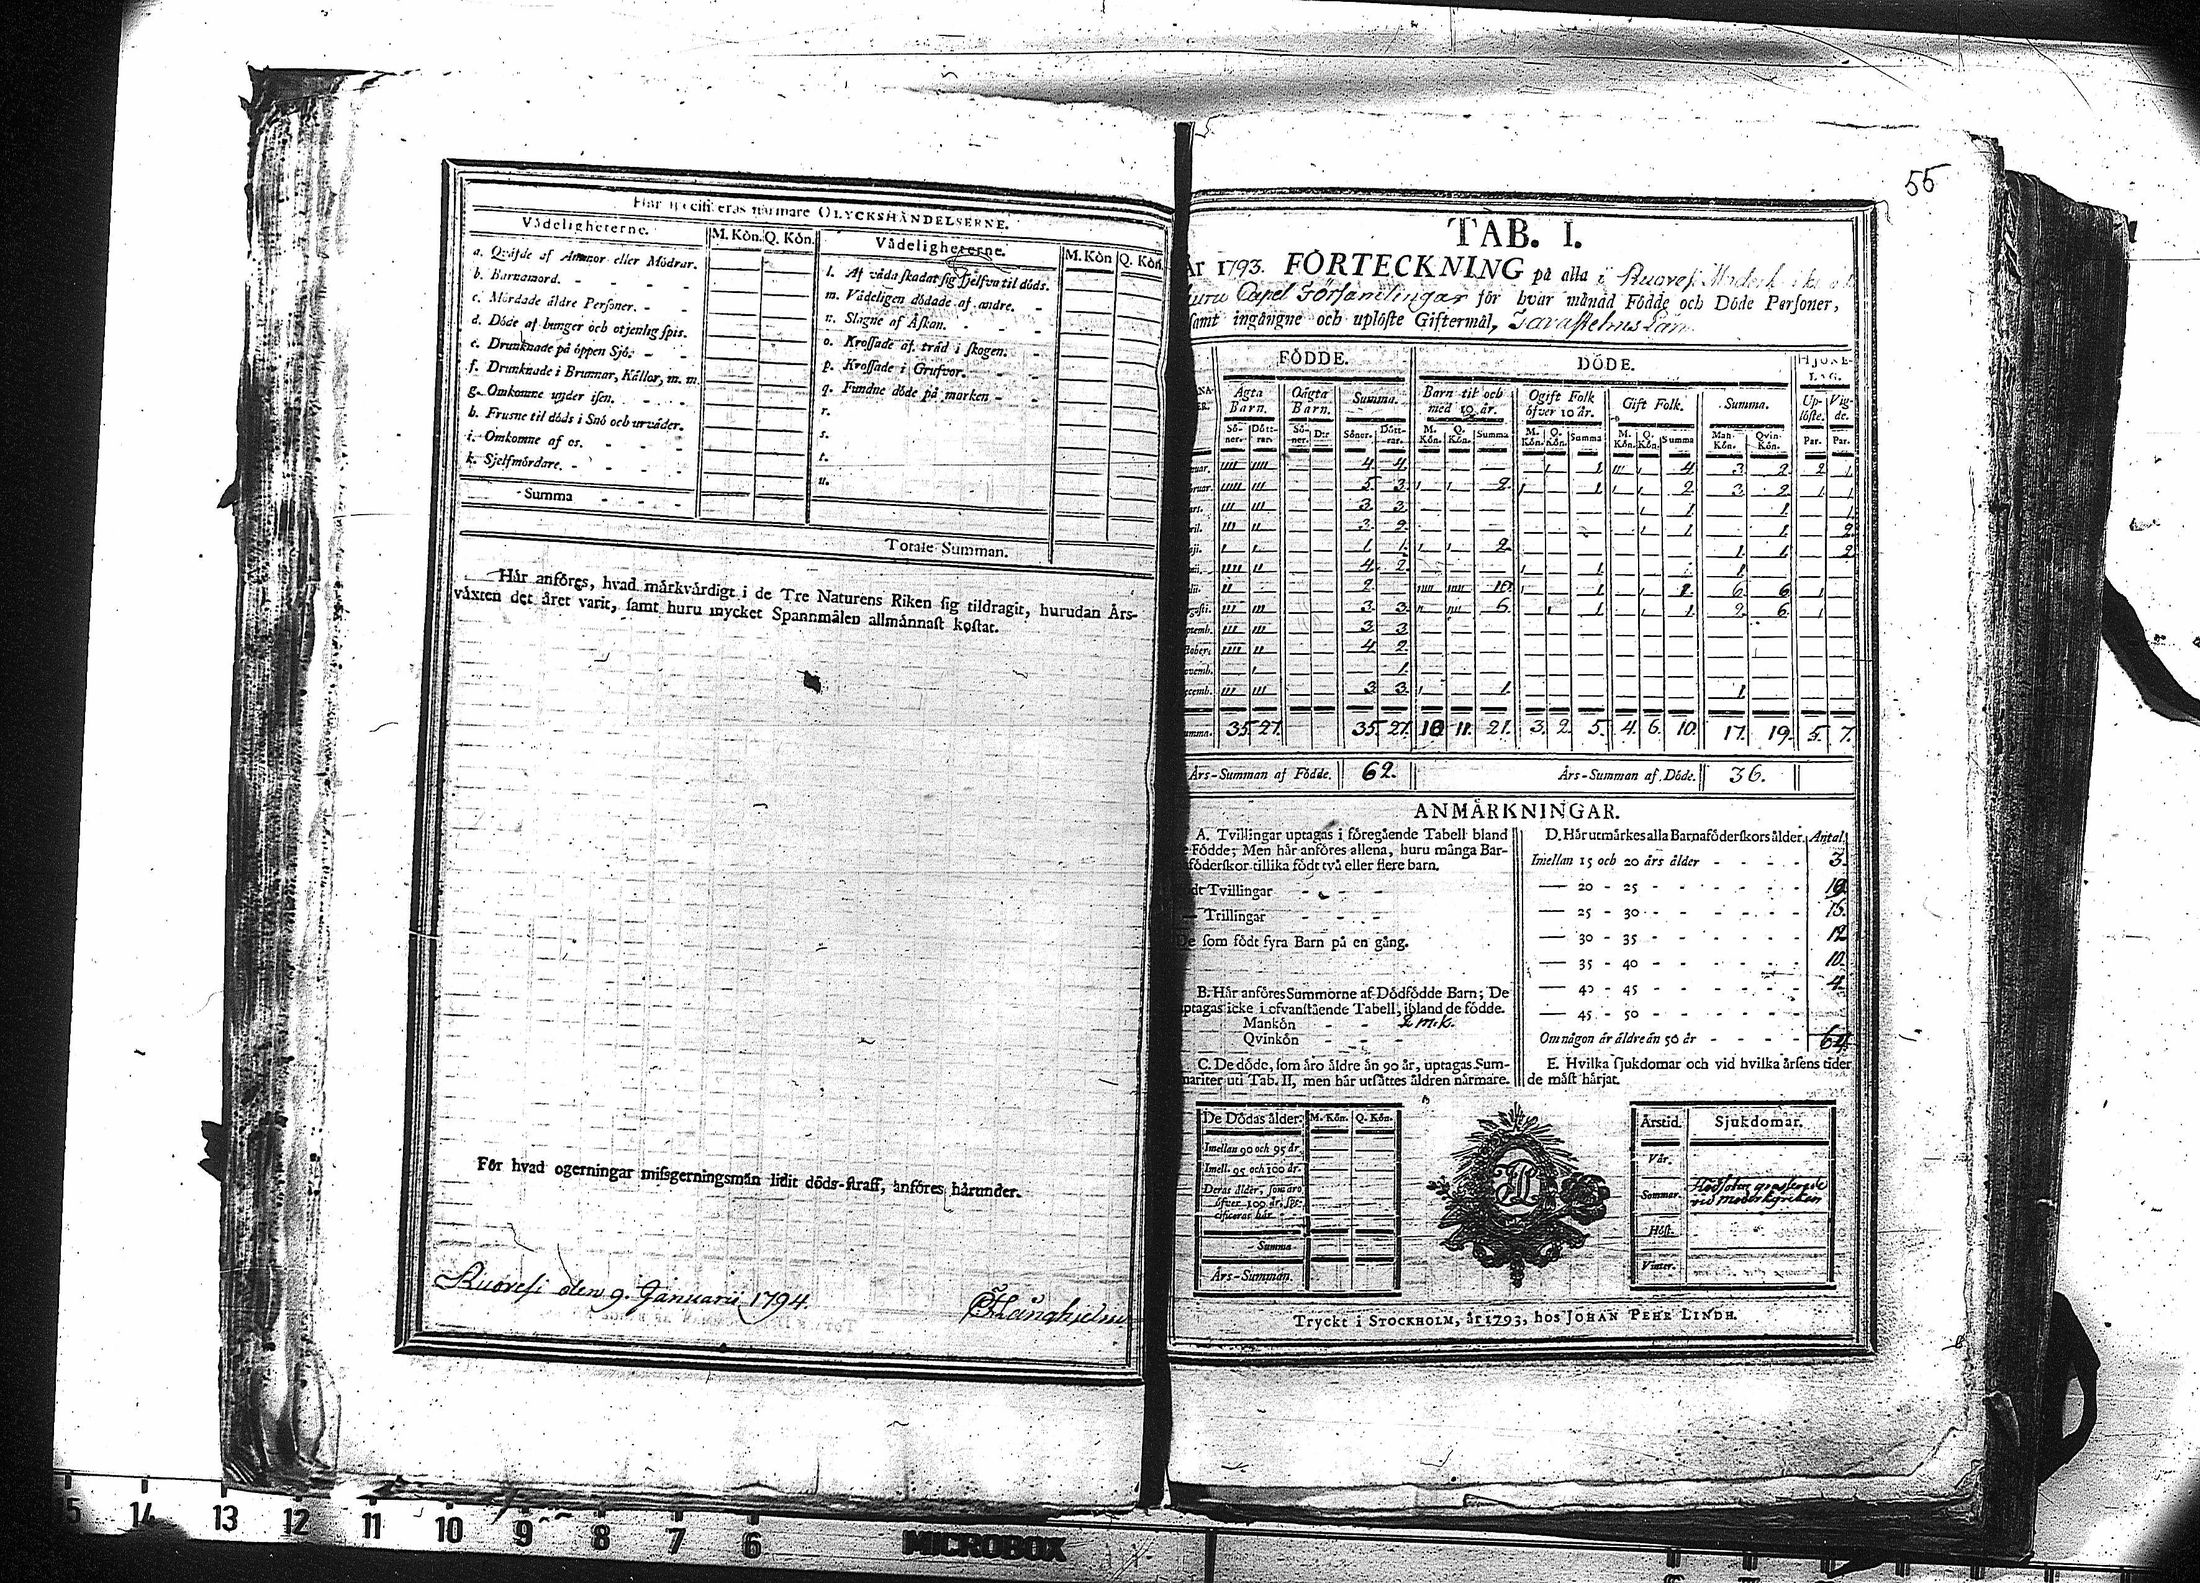 Här specificeras närmare OLYCKSHÄNDELSERNE.
Vådeligheterne. M. Kön. Q. Kön. Vådeligheterne. M. Kön Q. Kön.
a. Qväfde af Ammor eller Mödrar.
b. Barnamord.
c. Mördade äldre Personer.
d. Döde af hunger och otjenlig spis.
e. Drunknade på öppen Sjö.
f. Drunknade i Brunnar, Källor, m. m.
g. Omkomne under isen.
h. Frusne til döds i Snö och urväder.
i. Omkomne af os.
k. Sjelfmördare.
Summa
l. Af våda skadat sig sjelfva til döds.
m. Vådeligen dödade af andre.
n. Slagne af Åskan.
o. Krossade af träd i skogen.
p. Krossade i Grufvor.
q. Fundne döde på marken
r.
s.
t.
u.
Totale Summan.
Här anföres, hvad märkvärdigt i de Tre Naturens Riken sig tildragit, hurudan Års-
växten det året varit, samt huru mycket Spannmålen allmännast kostat.
För hvad ogerningar missgerningsmän lidit döds-straff, anföres härunder.
Ruovesi den 9. Januarii 1794.
55
TAB. I.
År 1793. FÖRTECKNING på alla i Ruovesi
Capel Församlingar för hvar månad Födde och Döde Personer,
samt ingångne och uplöste Giftermål, Tavastehus Län
FÖDDE. DÖDE. HJONE-
LAG.
Ägta Barn. Oägta Barn. Summa. Barn til och med 10 år. Ogift Folk öfver 10 år. Gift Folk. Summa. Up-löste. Vig-de.
Sö-ner. Dött-rar. Sö-ner. D:r Söner. Dött-rar. M. Kön. Q. Kön. Summa M. Kön. Q. Kön. Summa M. Kön. Q. Kön. Summa Man-Kön. Qvin-Kön. Par. Par.
uar. IIII IIII 4 4 1 1 III 1 4 3 2 2 1
bruar. IIIII III 5 3 1 1 2 1 1 1 1 2 3 2 1 1
ars. III III 3 3 1 1 1 1
ril. III II 3 2 1 1 1 2
aji. 1 1 1 1 1 1 2 1 1 2
nii. IIII II 4 2 1 1 1
ulii. II 2 10 1 1 1 6 6 1
gusti. III III 3 3 6 1 1 1 1 2 6 1
ptemb. III III 3 3
ctober. IIII II 4 2
ovemb. 1 1
ecemb. III III 3 3 1 1 1
umma. 35 27 35 27 10 11. 21. 3. 2. 5. 4. 6. 10. 17. 19. 5. 7.
Års-Summan af Födde. 62. Års-Summan af Döde. 36.
ANMÄRKNINGAR.
A. Tvillingar uptagas i föregående Tabell bland
e Födde; Men här anföres allena, huru många Bar-
föderskor tillika födt två eller flere barn.
dt Tvillingar
Trillingar
De som födt fyra Barn på en gång.
B. Här anföres Summorne af Dödfödde Barn; De
ptagas icke i ofvanstående Tabell, ibland de födde.
Mankön 2 m.k.
Qvinkön
C. De döde, som äro äldre än 90 år, uptagas Sum-
mariter uti Tab. II, men här utsättes åldren närmare.
D. Här utmärkes alla Barnaföderskors ålder. Antal.
Imellan 15 och 20 års ålder 3.
20 - 25
25 - 30
30 - 35 12
35 - 40 10.
40 - 45 4.
45 - 50
Om någon är äldre än 50 år
E. Hvilka sjukdomar och vid hvilka årsens tider
de mäst härjat.
De Dödas ålder. M. Kön. Q. Kön.
Imellan 90 och 95 år.
Imell. 95 och 100 år.
Deras ålder, som äro
öfver 100 år, spe-
cificeras här
Summa
Års-Summan.
Årstid. Sjukdomar.
Vår.
Sommar. Rödsoten grasserade
vid moderkyrckan
Höst.
Vinter.
Tryckt i STOCKHOLM, år 1793, hos JOHAN PEHR LINDH.
15 14 13 12 11 10 9 8 7 6 MICROBOX